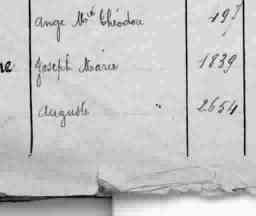 Ange Mie Théodore 197
ne Joseph Marie 1839
Auguste " 2654